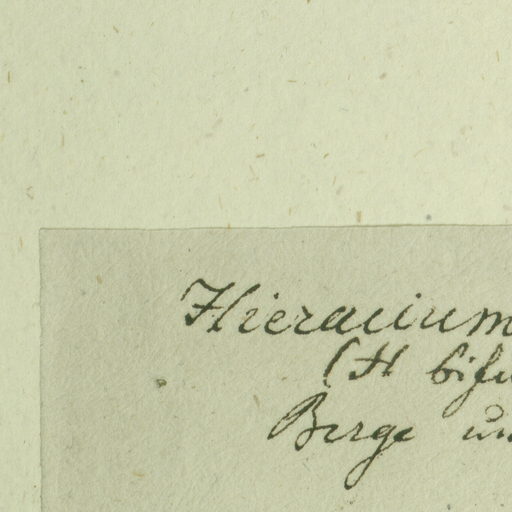 Hieracium
(H bifu
Berge un